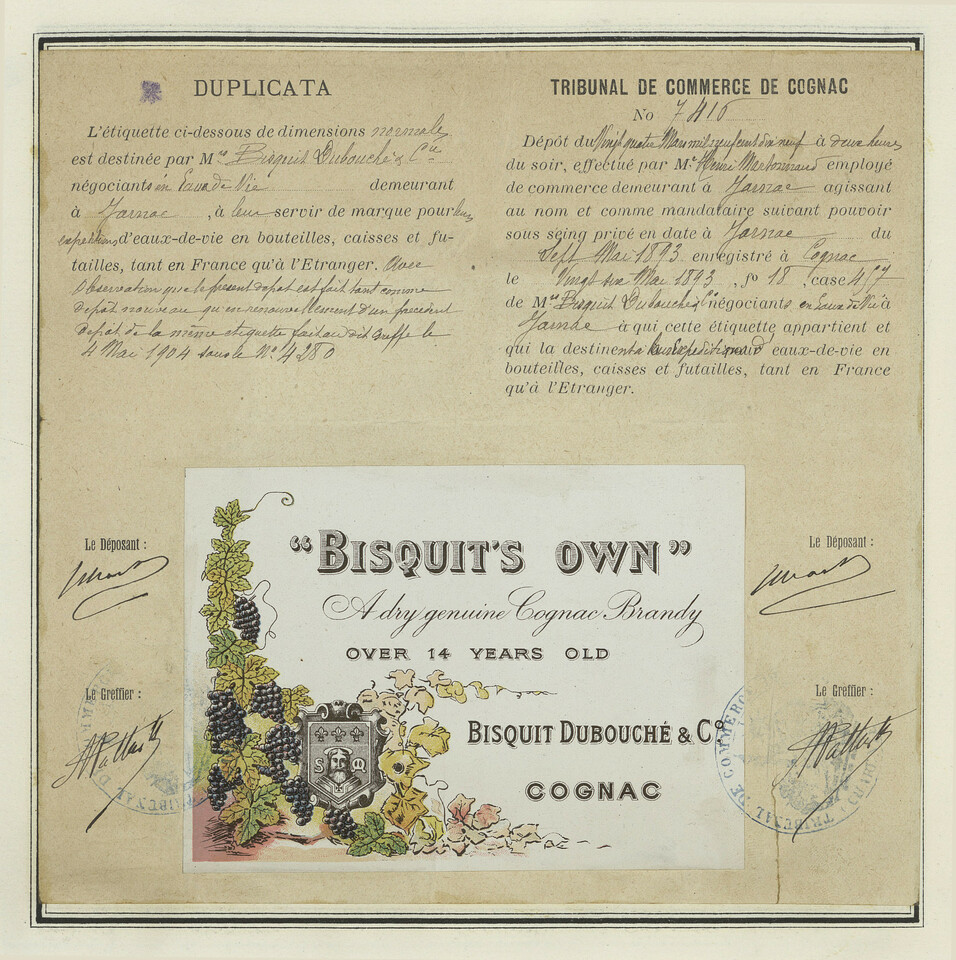 DUPLICATA
L'étiquette ci-dessous de dimensions normales
est destinée par Mrs Bisquit Dubouché & Cie
négociants en Eaux de Vie demeurant
à Jarnac, à leur servir de marque pour leurs
expéditions d'eaux-de-vie en bouteilles, caisses et fu-
tailles, tant en France qu'à l'Etranger. Avec
observation que le présent dépôt est fait tant comme
dépôt nouveau qu'en renouvellement d'un précédent
dépôt de la même étiquette fait au dit Greffe le
4 Mai 1904 sous le No 4280
TRIBUNAL DE COMMERCE DE COGNAC
No 7416
Dépôt du Vingt quatre Mai mil neuf cent dix neuf à deux heures
du soir, effectué par Mr Henri employé
de commerce demeurant à Jarnac agissant
au nom et comme mandataire suivant pouvoir
sous seing privé en date à Jarnac du
Sept Mai 1893 enregistré à Cognac
le Vingt six Mai 1893, fo 18, case 457
de Mrs Bisquit Dubouché & Co négociants en Eaux de Vie à
Jarnac à qui cette étiquette appartient et
qui la destinent à leurs expéditions d'eaux-de-vie en
bouteilles, caisses et futailles, tant en France
qu'à l'Etranger.
Le Déposant :
Le Déposant :
"BISQUIT'S OWN"
A dry genuine Cognac Brandy
OVER 14 YEARS OLD
BISQUIT DUBOUCHÉ & Co.
COGNAC
S M
Le Greffier :
Le Greffier :
TRIBUNAL DE COMMERCE
TRIBUNAL DE COMMERCE